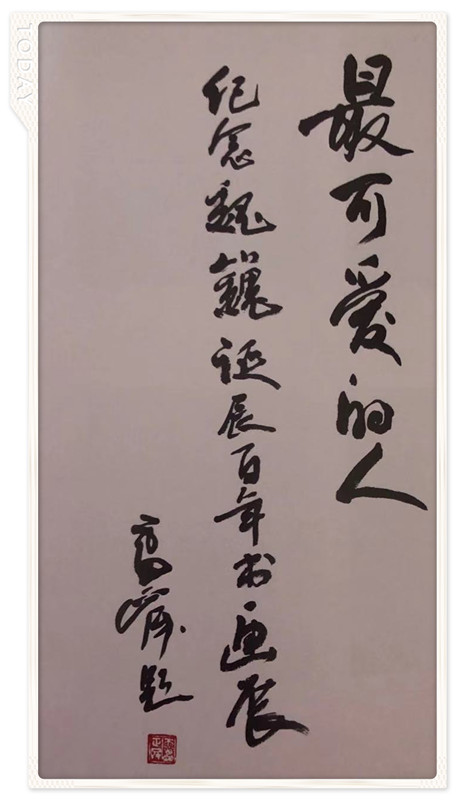 TODAY
最可爱的人
纪念魏巍诞辰百年书画展
题